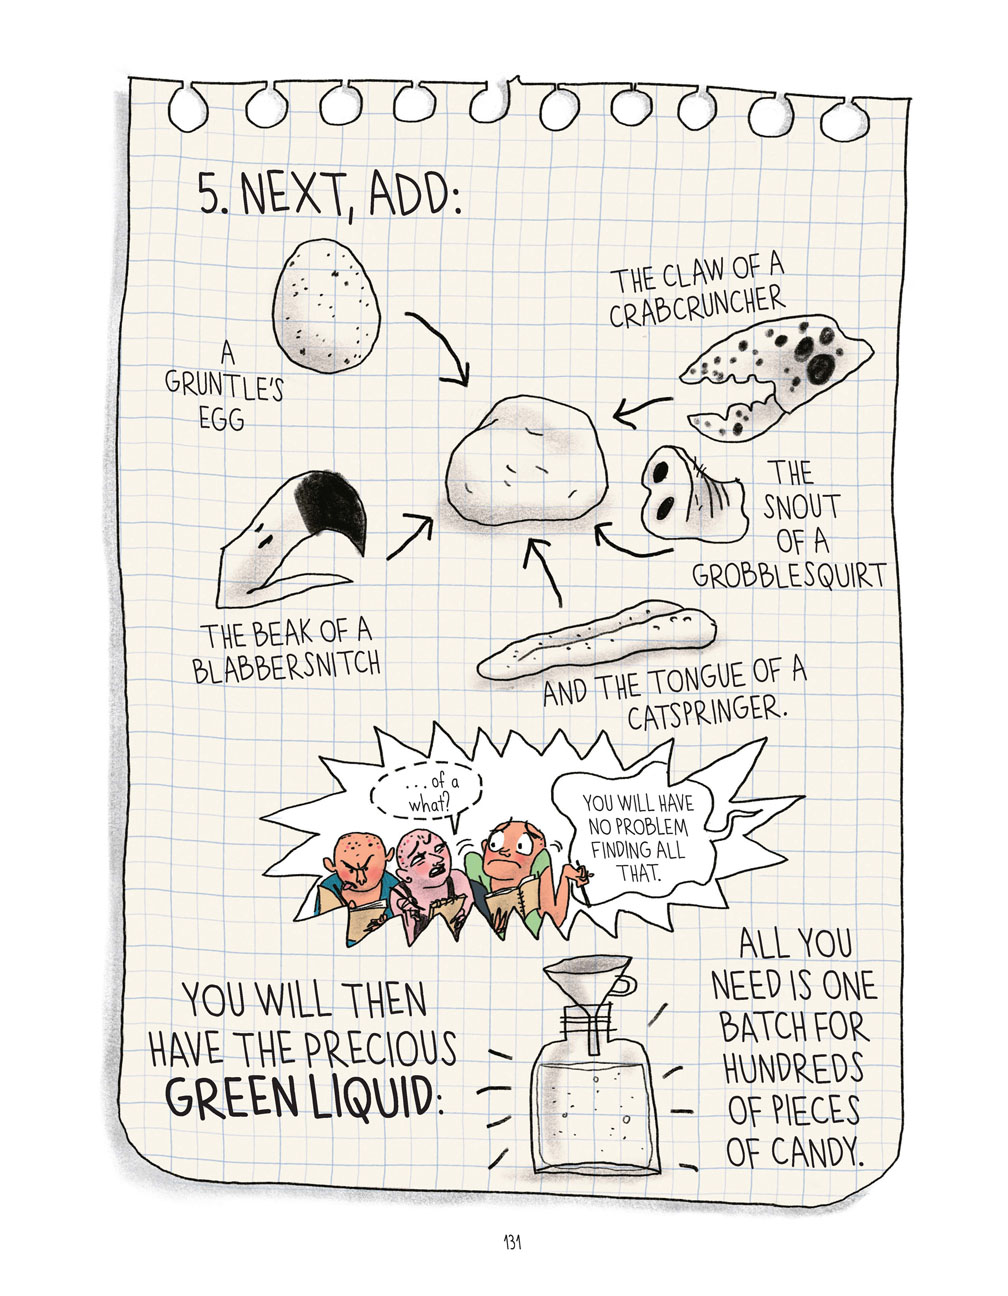 5. NEXT, ADD:
A
GRUNTLE'S
EGG
THE CLAW OF A
CRABCRUNCHER
THE
SNOUT
OF A
GROBBLESQUIRT
THE BEAK OF A
BLABBERSNITCH
AND THE TONGUE OF A
CATSPRINGER.
...of a
what?
YOU WILL HAVE
NO PROBLEM
FINDING ALL
THAT.
YOU WILL THEN
HAVE THE PRECIOUS
GREEN LIQUID:
ALL YOU
NEED IS ONE
BATCH FOR
HUNDREDS
OF PIECES
OF CANDY.
131